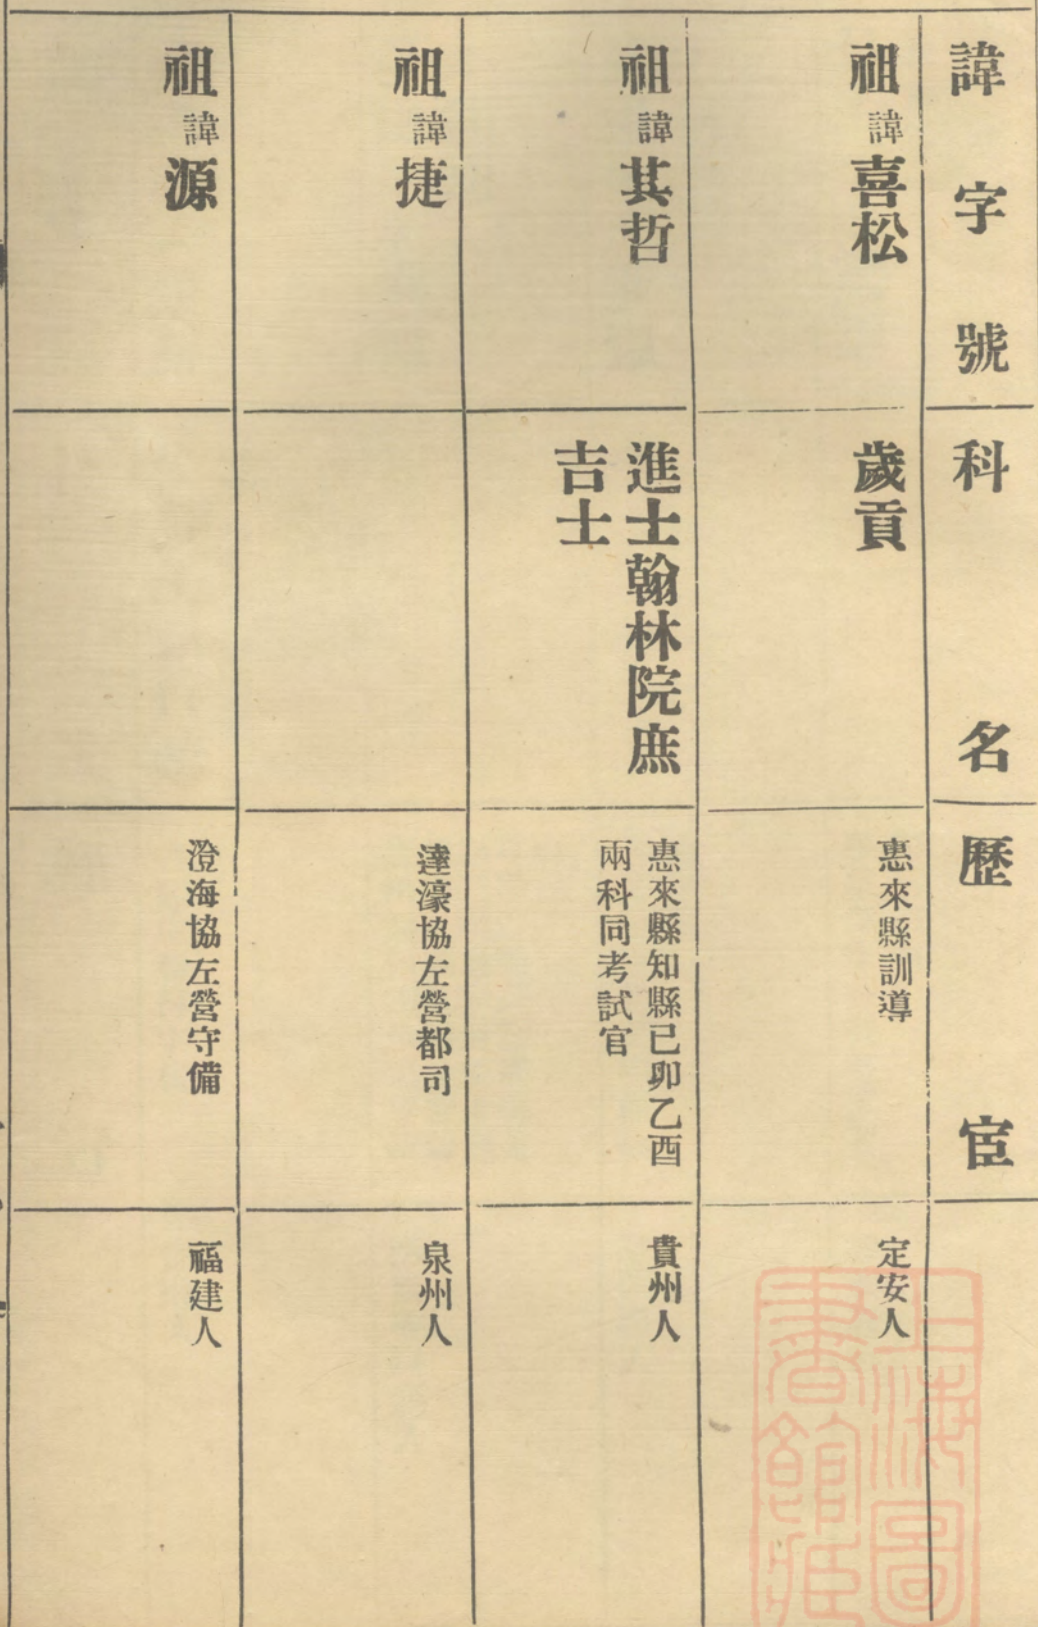 諱字號
科名
歷宦
祖諱喜松
歲貢
惠來縣訓導
定安人
祖諱其哲
進士翰林院庶
吉士
惠來縣知縣己卯乙酉
兩科同考試官
貴州人
祖諱捷
達濠協左營都司
泉州人
祖諱源
澄海協左營守備
福建人
上海圖
書館藏